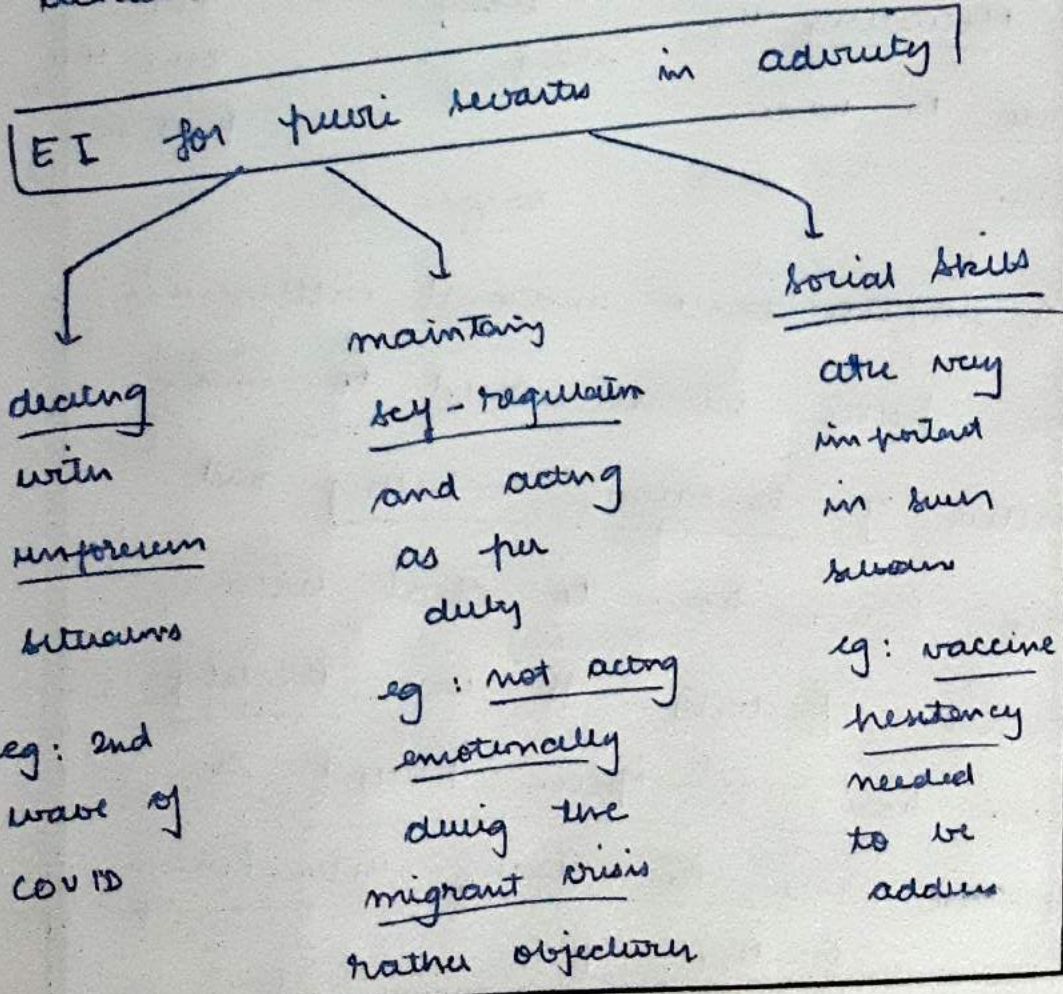 EI for public servants in adversity
dealing
with
unforeseen
situations
eg: 2nd
wave of
COVID
maintaing
self-regulation
and acting
as per
duty
eg: not acting
emotionally
during the
migrant crisis
rather objectively
Social Skills
are very
important
in such
eg: vaccine
hesitency
needed
to be
address